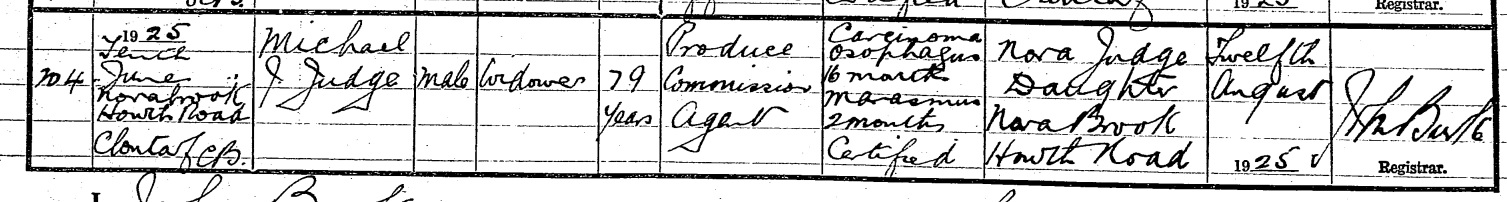 1925
Registrar.
204
1925
Tenth
June
Norabrook
Howth Road
Clontarf C.B.
Michael
J Judge
Male
Widower
79
Years
Produce
Commission
Agent
Carcinoma
Osophagus
16 months
Marasmus
2 months
Certified
Nora Judge
Daughter
Nora Brook
Howth Road
Twelfth
August
1925
Registrar.